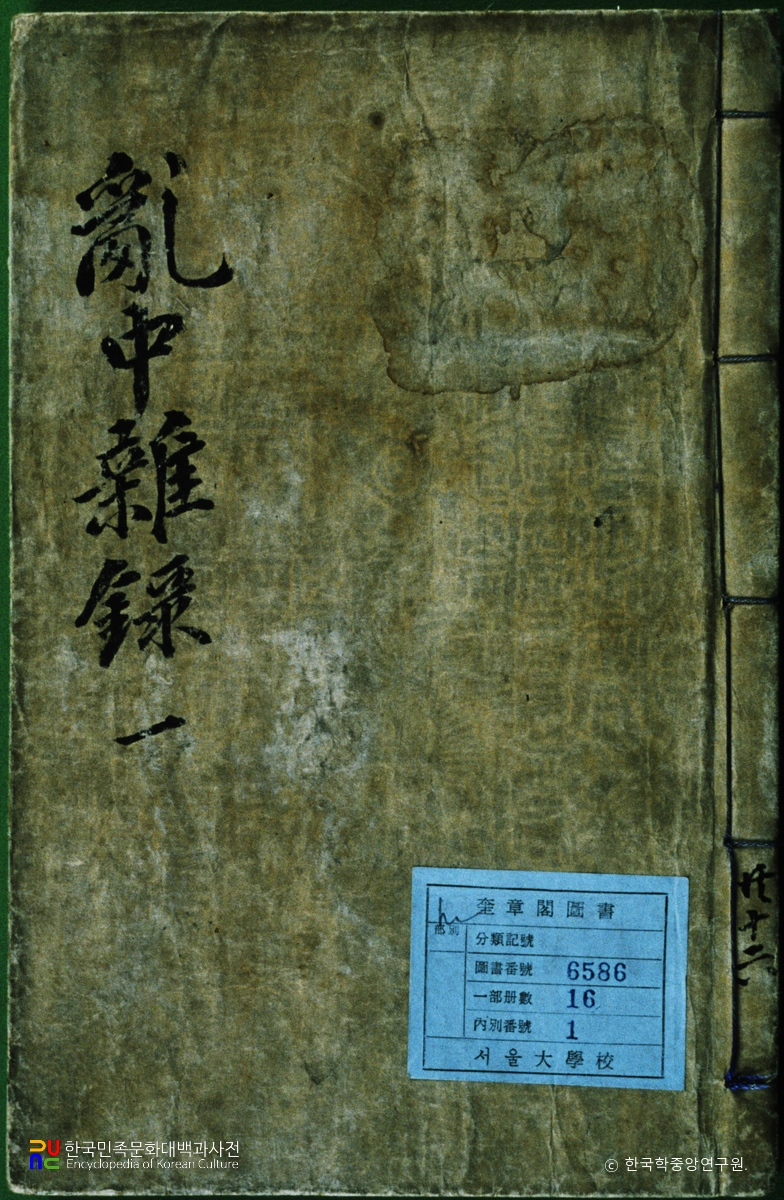 亂中雜錄 一
奎章閣圖書
部別
分類記號
圖書番號 6586
一部册數 16
內別番號 1
서울大學校
한국민족문화대백과사전
Encyclopedia of Korean Culture
© 한국학중앙연구원.